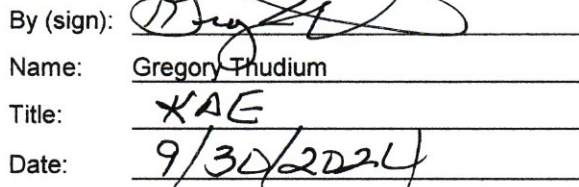 By (sign):
Name: Gregory Thudium
Title: KAE
Date: 9/30/2024